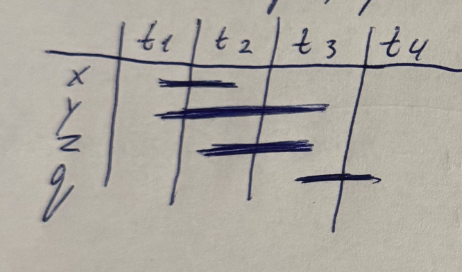 t1 t2 t3 t4
x
y
z
q